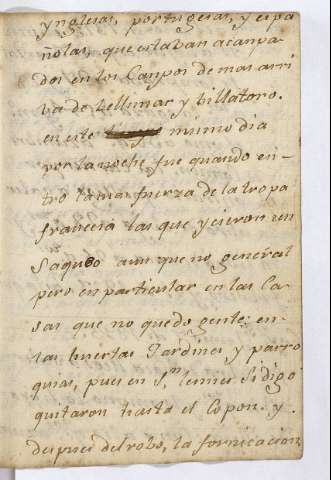 ynglesas, portugesas, y espa
ñolas, que estavan acanpa
dos en los Canpos de mas arri
va de Bellimar y Villatoro.
en este mismo dia
por la noche fue quando en-
tro la mas fuerza de la tropa
francesa las que ycieron un
Saqueo aun que no general
pero en particular en las Ca
sas que no quedo gente: en
las huertas Jardines y parro
quias, pues en Sn. lesmes
quitaron hasta el Copon. y
despues del robo, la fornicacion